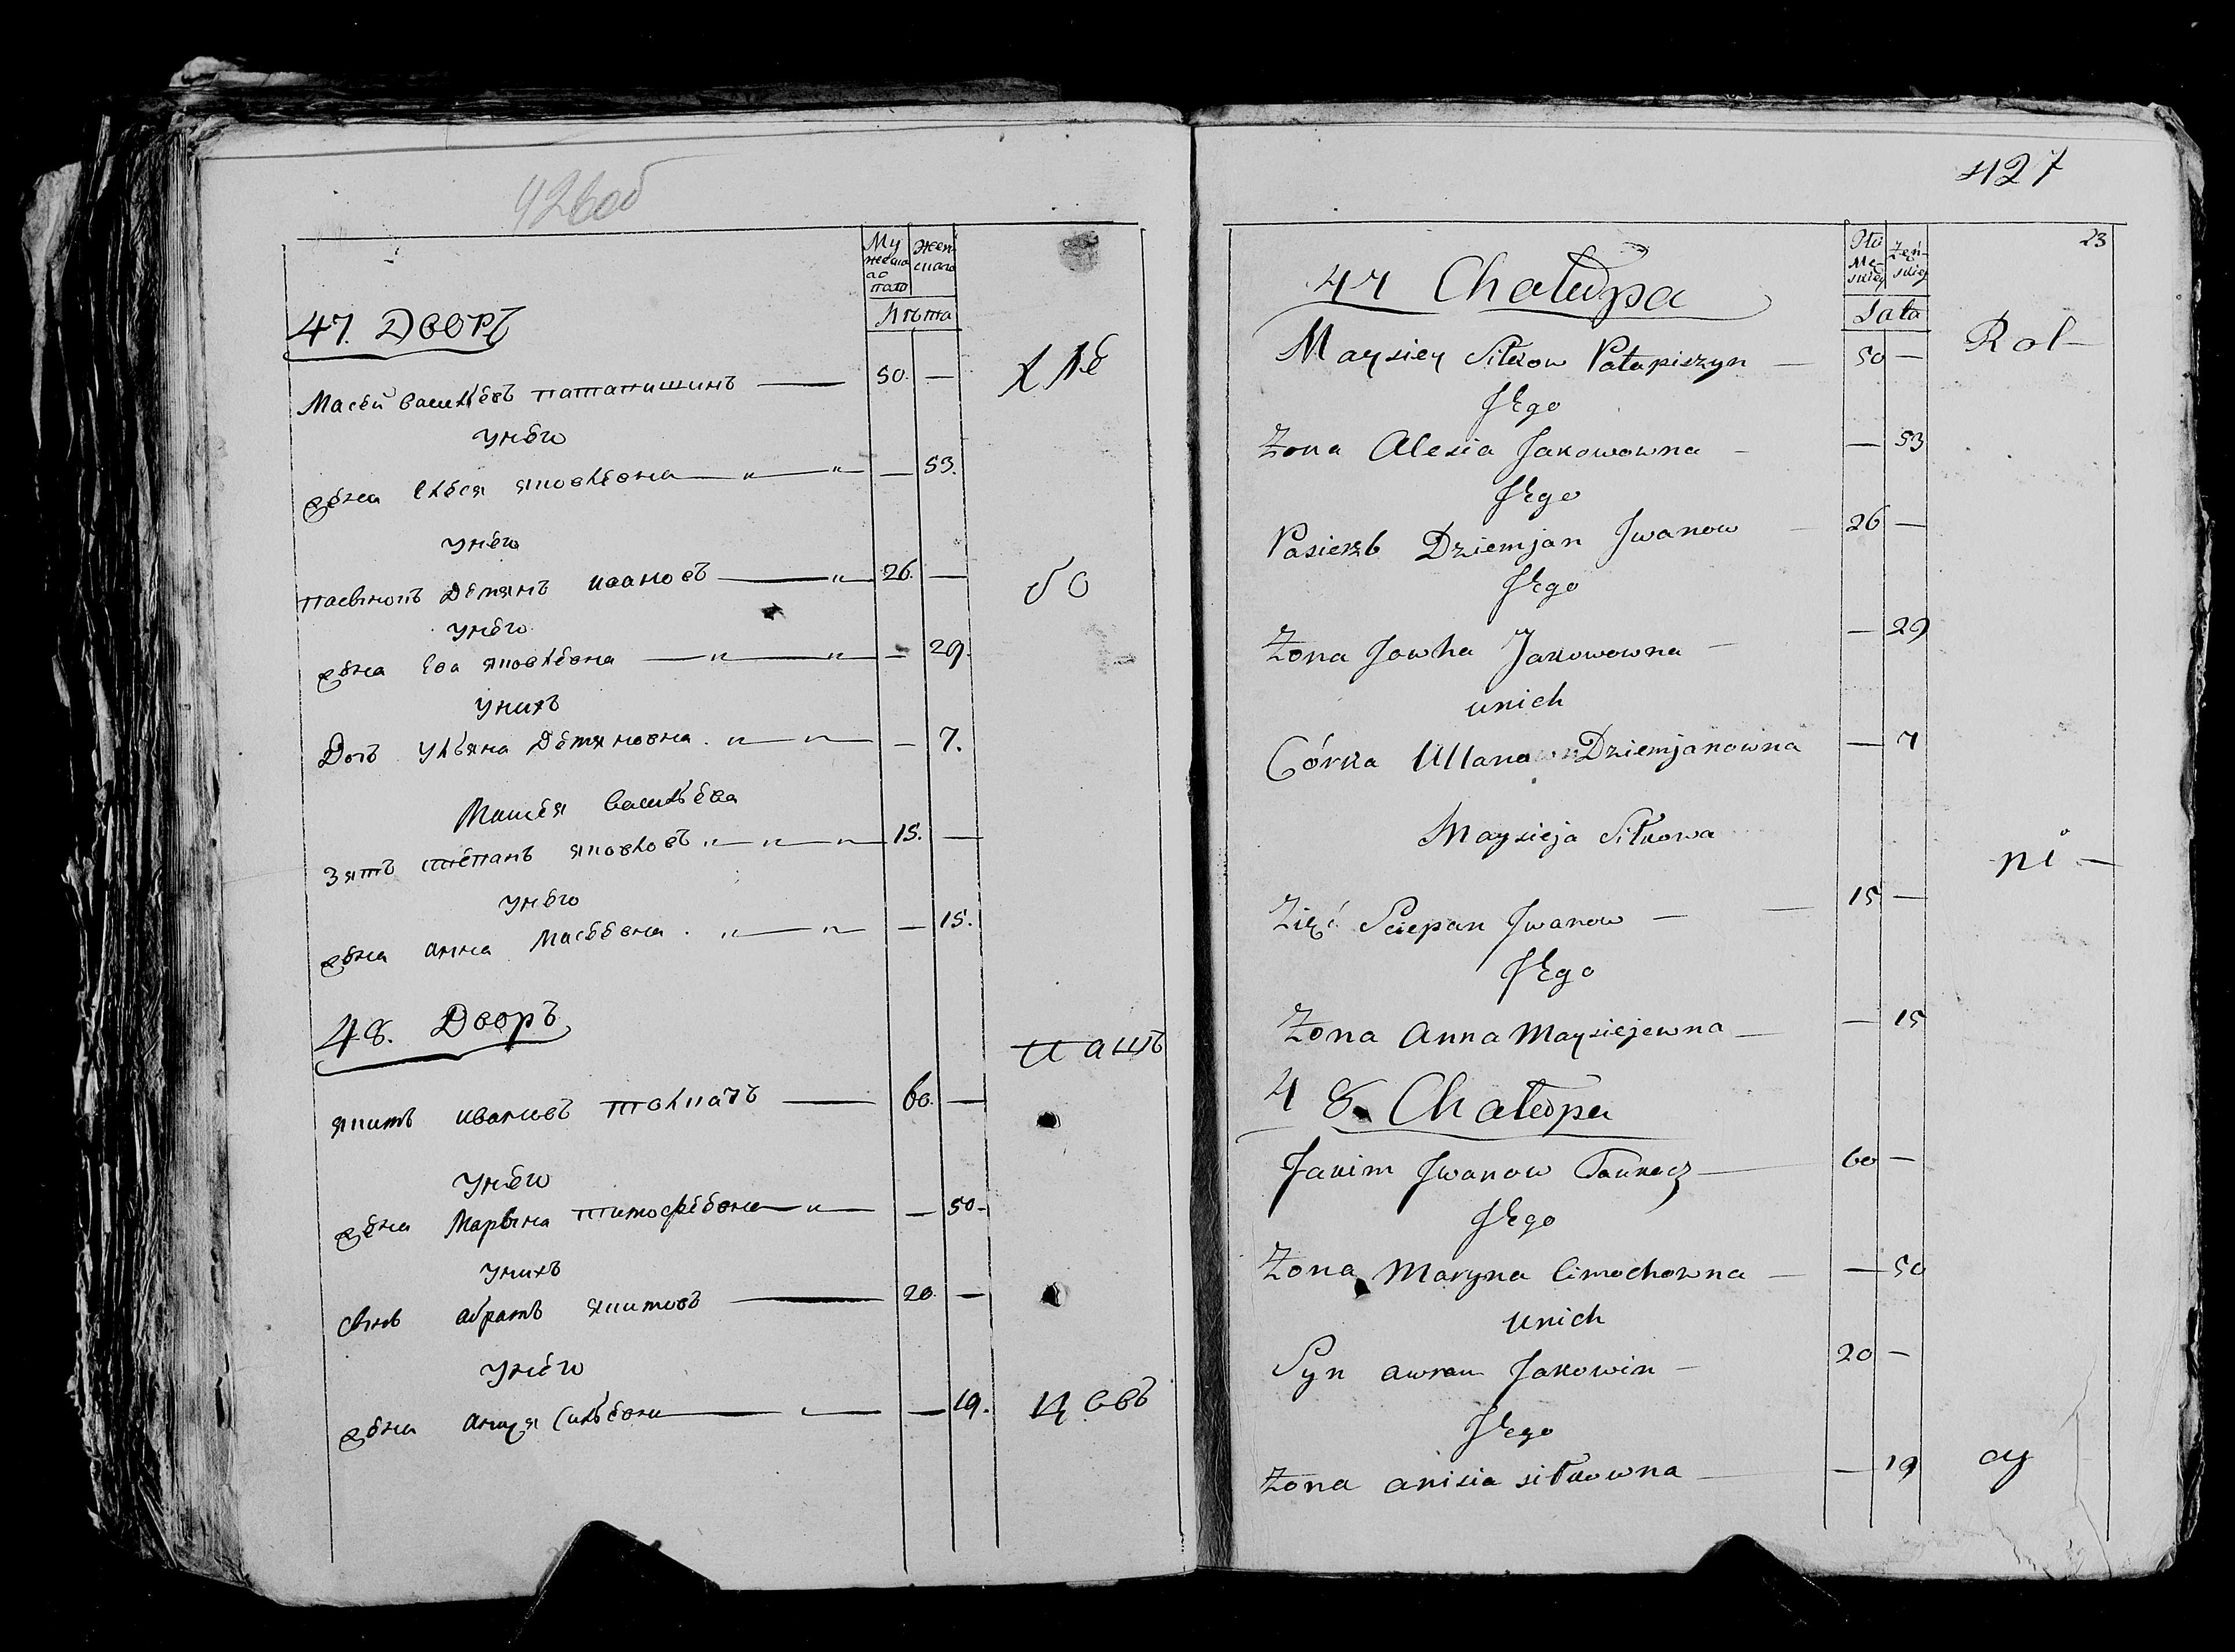 426об
Мужескаго пола
Женскаго
Лѣта
47. Дворъ
Масей Васильевъ Патапишинъ 50. —
у него
жена Елеся Яковлевна — 53.
у него
пасынокъ Демянъ Ивановъ 26. —
у него
жена Ева Яковлевна — 29.
у нихъ
Дочь Ульяна Демяновна — 7.
Масея Васильева
Зять Степанъ Яковлевъ 15. —
у него
жена Анна Масеевна — 15.
48. Дворъ
Якимъ Ивановъ 60. —
у него
жена Марына Тимофеевна — 50
у нихъ
сынъ Абрамъ Якимовъ 20. —
у него
жена — 19.
хле
бо
паш
цовъ
427
23
Płci Męskiej
Żeńskiej
Lata
47 Chałupa
Maysiey Siłkow Patapiszyn — 50 —
Jego
Żona Alesia Jakowowna — — 53
Jego
Pasierzb Dziemjan Jwanow — 26 —
Jego
Żona Jowha Jakowowna — — 29
unich
Córka Ullana Dziemjanowna — 7
Maysieja Siłkowa
Zięć Sciepan Jwanow — — 15 —
Jego
Żona Anna Maysiejewna — — 15
48. Chałupa
Jakim Jwanow — 60 —
Jego
Żona Maryna Cimochowna — — 50
unich
Syn Awram Jakowin — 20 —
Jego
Żona Anisia Siłkowna — — 19
Rol—
ni —
cy